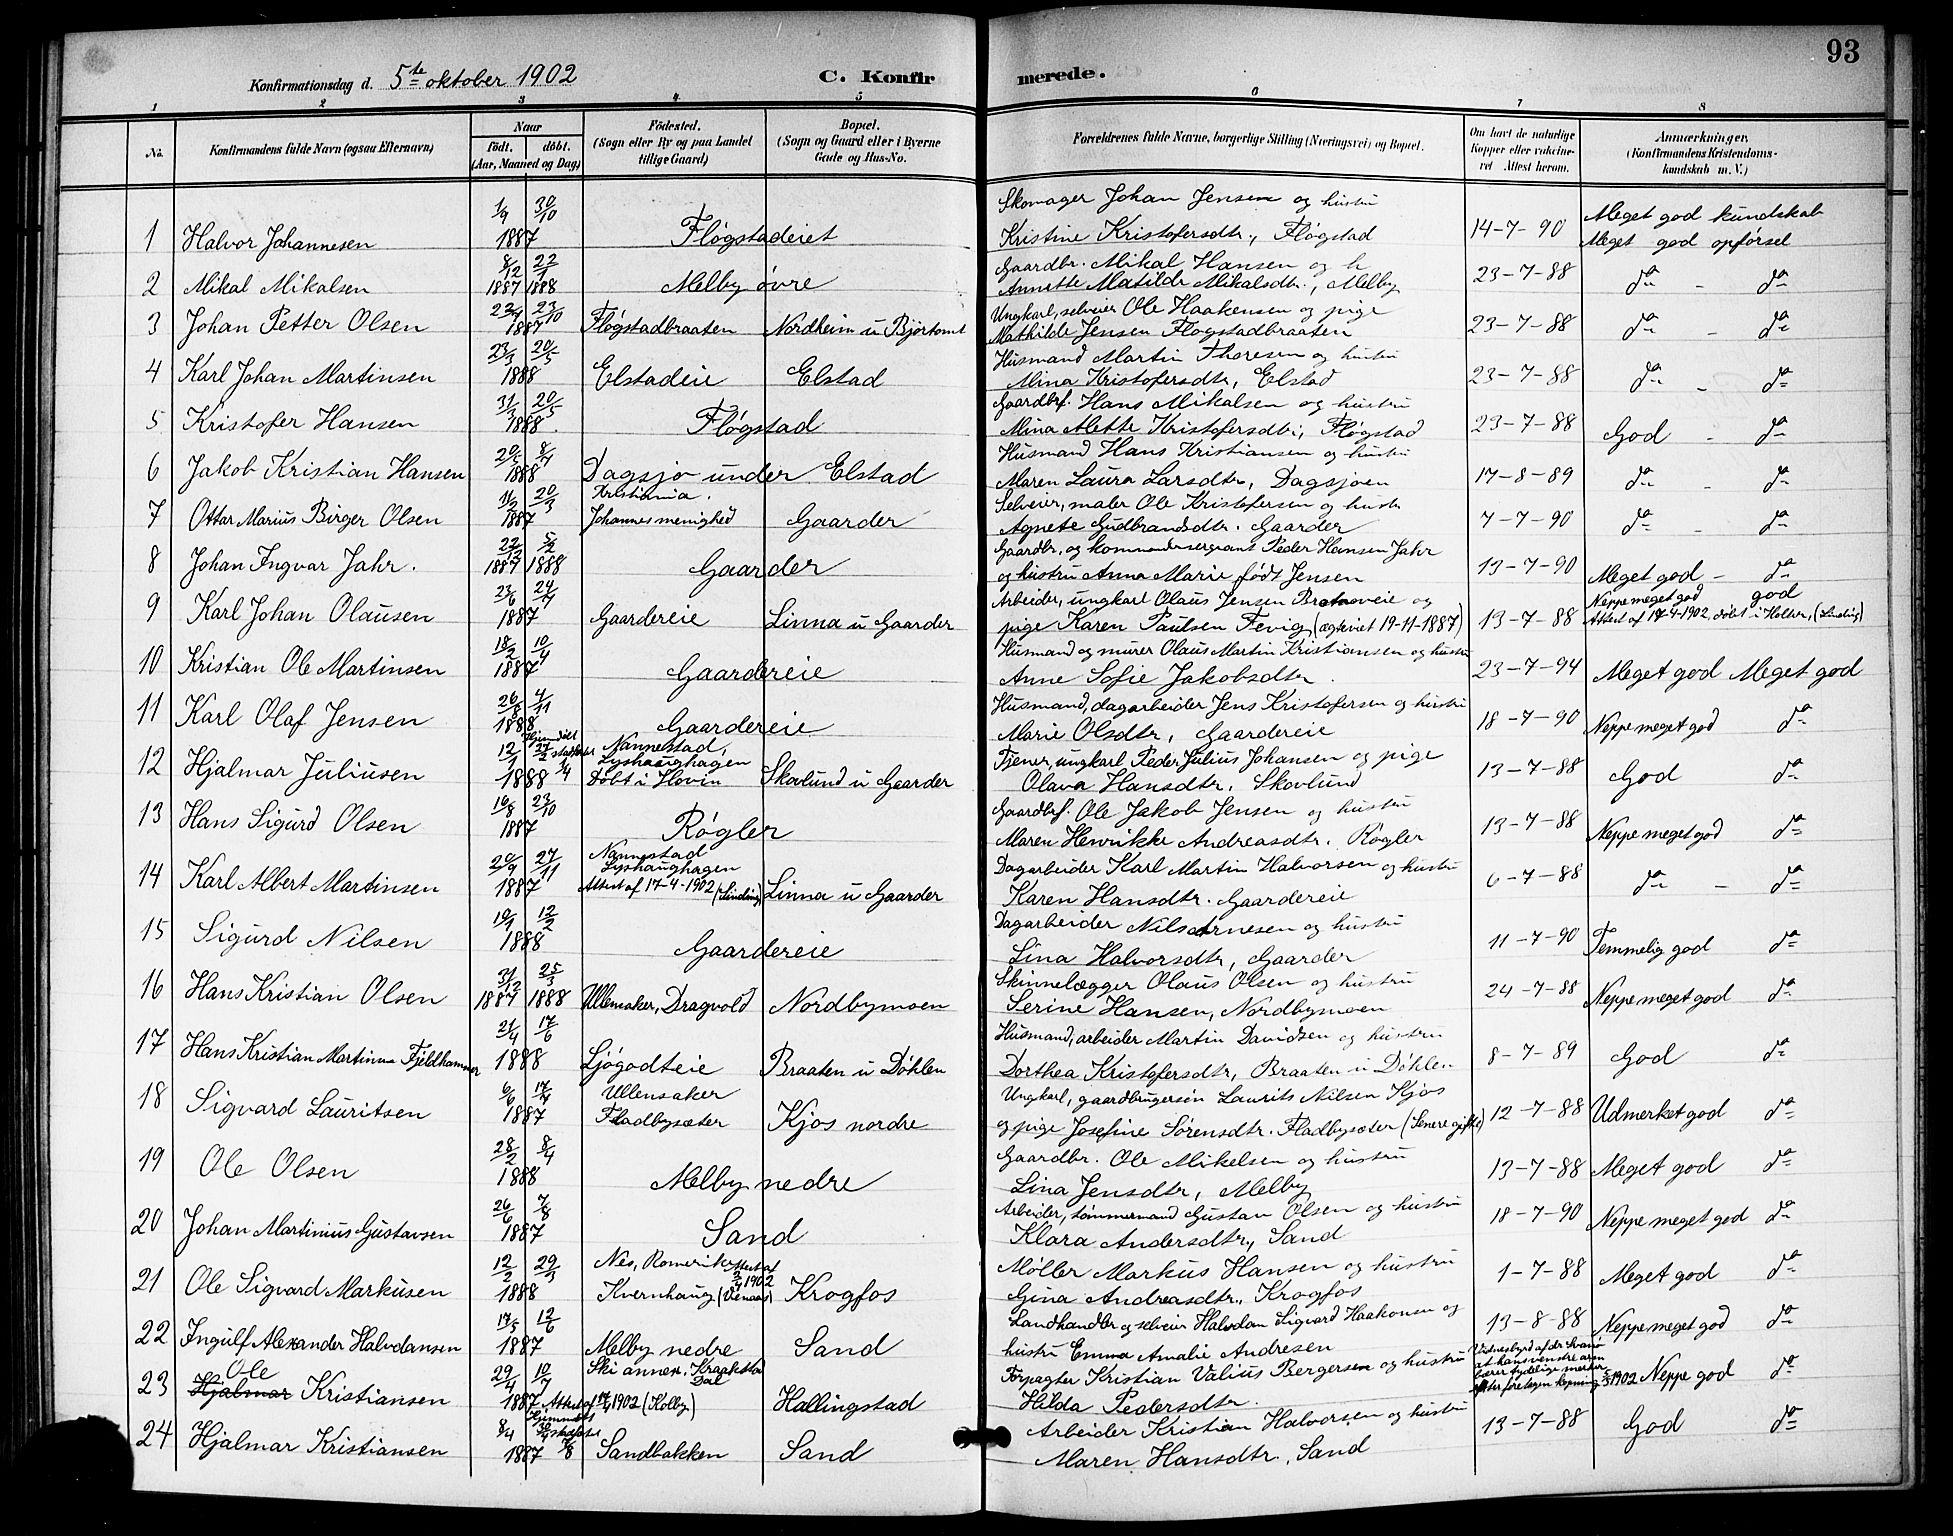 93
Konfirmationsdag d. 5te oktober 1902 C. Konfirmerede.
1 2 3 4 5 6 7 8
No. Konfirmandens fulde Navn (ogsaa Efternavn) Naar født. døbt. (Aar, Maaned og Dag) Fødested. (Sogn eller By og paa Landet tillige Gaard) Bopæl. (Sogn og Gaard eller i Byerne Gade og Hus-No. Forældrenes fulde Navne, borgerlige Stilling (Næringsvei) og Bopæl. Om havt de naturlige Kopper eller vakcineret Attest herom. Anmærkninger. (Konfirmandens Kristendomskundskab m. V.)
1 Halvor Johannesen 1/9 30/10 1887 Fløgstadeiet Skomager Johan Jensen og hustru Kristine Kristofersdtr., Fløgstad 14-7-90 Meget god kundskab Meget god opførsel
2 Mikal Mikalsen 8/12 1887 22/1 1888 Melby øvre Gaardbr. Mikal Hansen og h Annette Matilde Mikalsdtr., Melby 23-7-88 do - do
3 Johan Petter Olsen 22/9 23/10 1887 Fløgstadbraaten Nordheim u Bjørtomt Ungkarl, selveier Ole Haakensen og pige Mathilde Jensen Fløgstadbraaten 23-7-88 do - do
4 Karl Johan Martinsen 23/3 20/5 1888 Elstadeie Elstad Husmand Martin Thoresen og hustru Mina Kristofersdtr, Elstad 23-7-88 do - do
5 Kristofer Hansen 31/3 20/5 1888. Fløgstad Gaardbrf. Hans Mikalsen og hustru Mina Mette Kristofersdtr, Fløgstad 23-7-88 God - do
6 Jakob Kristian Hansen 1888 Dagsjø under Elstad Husmand Hans Kristiansen og hustru Maren Laura Larsdtr, Dagsjøen 17-8-89 do - do
7 Ottar Marius Birger Olsen 11/2 20/3 1887 Kristiania. Johannesmenighed Gaarder Selveier, maler Ole Kristofersen og hustr Agnete Gudbrandsdtr. Gaarder 7-7-90 do - do
8 Johan Ingvar Jahr. 22/12 1887 5/2 1888 Gaarder Gaardbr. og kommandersergeant Peder Hansen Jahr og hustru Anna Marie født Jensen 13-7-90 Meget god - do
9 Karl Johan Olausen 23/6 24/7 1887 Gaardereie Linna u Gaarder Arbeider, ungkarl Olaus Jensen og pige Karen Paulsen Fevig (ægteviet 19-11-1887) 13-7-88 Neppe meget god god Attest af 17-4-1902, døbt i Holter, (Linding)
10 Kristian Ole Martinsen 18/2 10/4 1887 Gaardereie Husmand og murer Olaus Martin Kristiansen og hustru Anne Sofie Jakobsdtr. 23-7-94 Meget god Meget god
11 Karl Olaf Jensen 26/8 4/11 1888 Gaardereie Husmand, dagarbeider Jens Kristofersen og hustru Marie Olsdtr, Gaardereie 18-7-90 Neppe meget god do
12 Hjalmar Juliusen 12/1 1888 Hjemdøbt 27/2 1/4 Nannestad, Lyshaughagen Døbt i Hovin Skovlund u Gaarder Tjener, ungkarl Peder Julius Johansen og pige Olava Hansdtr, Skovlund 13-7-88 God do
13 Hans Sigurd Olsen 16/8 23/10 1887 Røgler Gaardbrf. Ole Jakob Jensen og hustru Maren Henrikke Andreasdtr. Røgler 13-7-88 Neppe meget god do
14 Karl Albert Martinsen 20/9 27/11 1887 Nannestad Lyshaughagen Attest af 17-4-1902 (Linding) Linna u Gaarder Dagarbeider Karl Martin Halvorsen og hustru Karen Hansdtr. Gaardereie 6-7-88 do - do
15 Sigurd Nilsen 12/2 1888 Gaardereie Dagarbeider Nils Arnesen og hustru Lina Halvorsdtr, Gaarder 11-7-90 Temmelig god do
16 Hans Kristian Olsen 31/12 1887 25/3 1888 Ullensaker, Dragvold Nordbymoen Skinnelægger Olaus Olsen og hustru Serine Hansen, Nordbymoen 24-7-88 Neppe meget god do
17 Hans Kristian Martinus Fjeldhammer 21/4 17/6 1888 Ljøgodteie Braaten u Døhlen Husmand, arbeider Martin Davidsen og hustru Dorthea Kristofersdtr, Braaten u Døhlen 8-7-89 God do
18 Sigvard Lauritsen 6/6 17/7 1887 Ullensaker Fladbysæter Kjos nordre Ungkarl, gaardbrugersøn Laurits Nilsen Kjos og pige Josefine Sørensdtr. Fladbysæter (Senere gifte) 12-7-88 Udmerket god do
19 Ole Olsen 28/2 8/4 1888 Melby nedre Gaardbr. Ole Mikelsen og hustru Lina Jensdtr, Melby 13-7-88 Meget god do
20 Johan Martinius Gustavsen 26/6 7/8 1887 Sand Arbeider, tømmermand Gustav Olsen og hustru Klara Andersdtr, Sand 18-7-90 Neppe meget god do
21 Ole Sigvard Markusen 12/2 29/3 1888 Nes, Romerike Attest af 2/4 1902 Kvernhaug Krogfos Møller Markus Hansen og hustru Gina Andreasdtr, Krogfos 1-7-88 Meget god do
22 Ingulf Alexander Halvdansen 17/5 12/6 1887 Melby nedre Sand Landhandler og selveier Halvdan Sigvard Haakonsen og hustru Emma Amalie Andresen 13-8-88 Neppe meget god do
23 Ole Hjalmar Kristiansen 29/4 10/7 1887 Ski annex. Kraakstad Attest af 1902 (Kolby) Hallingstad Forpagter Kristian Valius Bergersen og hustru Hilda Pedersdtr. Vidnesbyrd af dr Svanø at hans venstre arm bærer tydelige merker efter foretagen kopning 1902 Neppe god do
24 Hjalmar Kristiansen 8/4 1887 Sandbakken Sand Arbeider Kristian Halvorsen og hustru Maren Hansdtr, Sand 13-7-88 God do